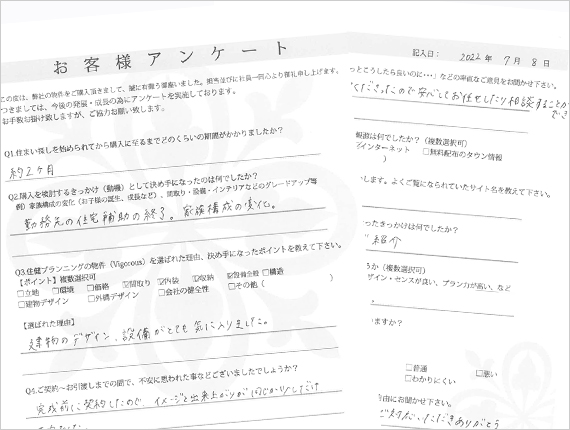 お客様アンケート
この度は、弊社の物件をご購入頂きまして、誠に有難う御座いました。担当並びに社員一同心より御礼申し上げます。
つきましては、今後の発展・成長の為にアンケートを実施しております。
お手数お掛け致しますが、ご協力お願い致します。
Q1.住まい探しを始められてから購入に至るまでどのくらいの期間がかかりましたか?
約2ヶ月
Q2.購入を検討するきっかけ（動機）として決め手になったのは何でしたか?
例）家族構成の変化（お子様の誕生、成長など）、間取り・設備・インテリアなどのグレードアップ等
勤務先の住宅補助の終了。家族構成の変化。
Q3.住健プランニングの物件（Vigorous）を選ばれた理由、決め手になったポイントを教えて下さい。
【ポイント】複数選択可
□立地 □環境 □価格 ☑間取り ☑内装 ☑収納 ☑設備全般 □構造
□建物デザイン □外構デザイン □会社の健全性 □その他（ ）
【選ばれた理由】
建物のデザイン、設備がとても気に入りました。
Q4.ご契約～お引渡しまでの間で、不安に思われた事などございましたでしょうか?
完成前に契約したので、イメージと出来上がりが同じか少しだけ
記入日： 2022年 7月 8日
っとこうしたら良いのに・・」などの率直なご意見をお聞かせ下さい。
くださったので安心してお任せしたり相談することが
でき
報源は何でしたか？（複数選択可）
インターネット □無料配布のタウン情報
）
します。よくご覧になられていたサイト名を教えて下さい。
ったきっかけは何でしたか?
紹介
うか（複数選択可）
ザイン・センスが良い、プラン力が高い、など
ますか?
□普通 □悪い
□わかりにくい
由にお聞かせ下さい。
ご対応いただきありがとう